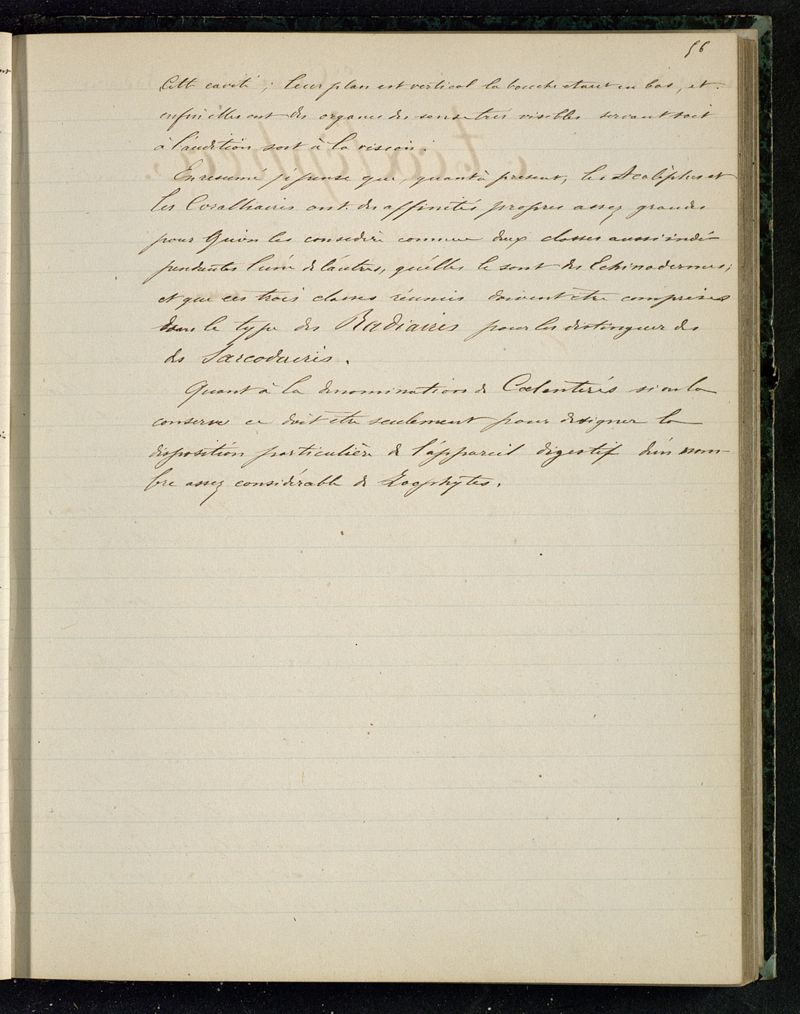 56
cette cavité ; leur plan est vertical la bouche etant en bas, et
enfin elles ont des organes des sens tres visibles servant soit
à l'audition soit à la vision.
En résumé je pense que, quant à present, les Acalèphes et
les Coralliaires ont des affinités propres assez grandes
pour qu'on les considère comme deux classes aussi indé-
pendantes l'une de l'autres, qu'elles le sont des Echinodermes;
et que ces trois classes réunies doivent être comprises
dans le type des Radiaires pour les distinguer des
des Sarcodaires.
Quant à la denomination de Cœlenterés si on la
conserve ce doit être seulement pour designer la
disposition particulière de l'appareil digestif d'un nom-
bre assez considérable de Zoophytes.